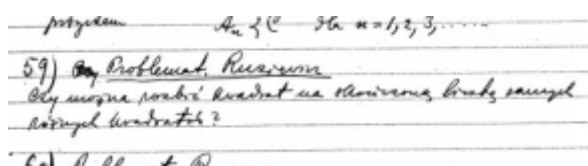 przyczem A_n ⊰ C dla n = 1, 2, 3, ......
59) Problemat. Ruziewicz
Czy można rozbić kwadrat na skończoną liczbę samych
różnych kwadratów?